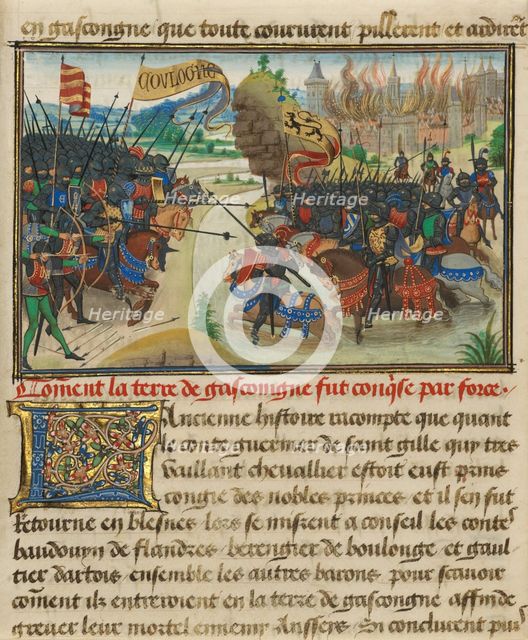 en gascongne que toute coururent pillerent et ardirent
COVLOGNE
Coment la terre de gascongne fut conqse par force
Ancienne histoire racompte que quant
le conte guerin de saint gille quy tres
vaillant chevallier estoit eust prins
congie des nobles princes et il sen fut
retourne en blesnes lors se misrent a conseil les conte
baudouyn de flandres berengier de boulongne et gaul
tier dartois ensemble les autres barons pour scavoir
coment ilz entreroient en la terre de gascongne affin de
grever leur mortel ennemy Anssers Si conclurent pur
Heritage
Heritage
Heritage
Heritage
Heritage